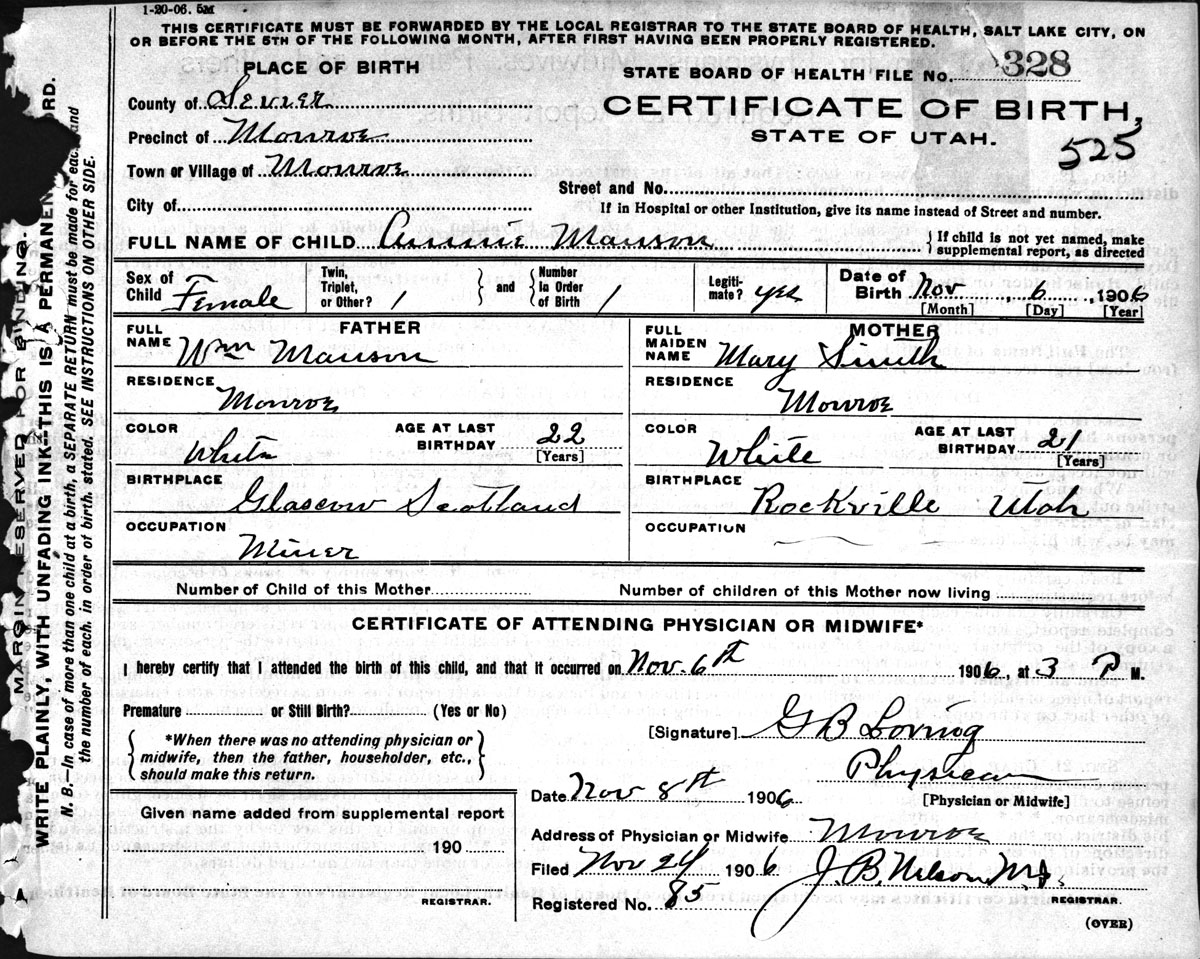 1-20-06. 5M
THIS CERTIFICATE MUST BE FORWARDED BY THE LOCAL REGISTRAR TO THE STATE BOARD OF HEALTH, SALT LAKE CITY, ON
OR BEFORE THE 5TH OF THE FOLLOWING MONTH, AFTER FIRST HAVING BEEN PROPERLY REGISTERED.
PLACE OF BIRTH
STATE BOARD OF HEALTH FILE No. 328
County of Sevier
CERTIFICATE OF BIRTH,
Precinct of Monroe
STATE OF UTAH.
525
Town or Village of Monroe
Street and No.
City of
If in Hospital or other Institution, give its name instead of Street and number.
FULL NAME OF CHILD Annie Manson { If child is not yet named, make
supplemental report, as directed
Sex of Child Female
Twin, Triplet, or Other? 1 } and { Number in Order of Birth 1
Legitimate? yes
Date of Birth Nov. 6, 1906
[Month] [Day] [Year]
FATHER
FULL NAME Wm Manson
RESIDENCE Monroe
COLOR White
AGE AT LAST BIRTHDAY 22
[Years]
BIRTHPLACE Glascow Scotland
OCCUPATION Miner
MOTHER
FULL MAIDEN NAME Mary Smith
RESIDENCE Monroe
COLOR White
AGE AT LAST BIRTHDAY 21
[Years]
BIRTHPLACE Rockville Utah
OCCUPATION
Number of Child of this Mother
Number of children of this Mother now living
CERTIFICATE OF ATTENDING PHYSICIAN OR MIDWIFE*
I hereby certify that I attended the birth of this child, and that it occurred on Nov. 6th 1906, at 3 P M.
Premature or Still Birth? (Yes or No)
{ *When there was no attending physician or
midwife, then the father, householder, etc.,
should make this return. }
[Signature] G B Loving
Physician
[Physician or Midwife]
Date Nov 8th 1906
Address of Physician or Midwife Monroe
Filed Nov 24 1906 J. B. Nelson M.D.
Registered No. 85 REGISTRAR.
(OVER)
Given name added from supplemental report
190
REGISTRAR.
MARGIN RESERVED FOR BINDING.
WRITE PLAINLY, WITH UNFADING INK-THIS IS A PERMANEN ORD.
N. B.—In case of more than one child at a birth, a SEPARATE RETURN must be made for each, and
the number of each, in order of birth, stated. SEE INSTRUCTIONS ON OTHER SIDE.